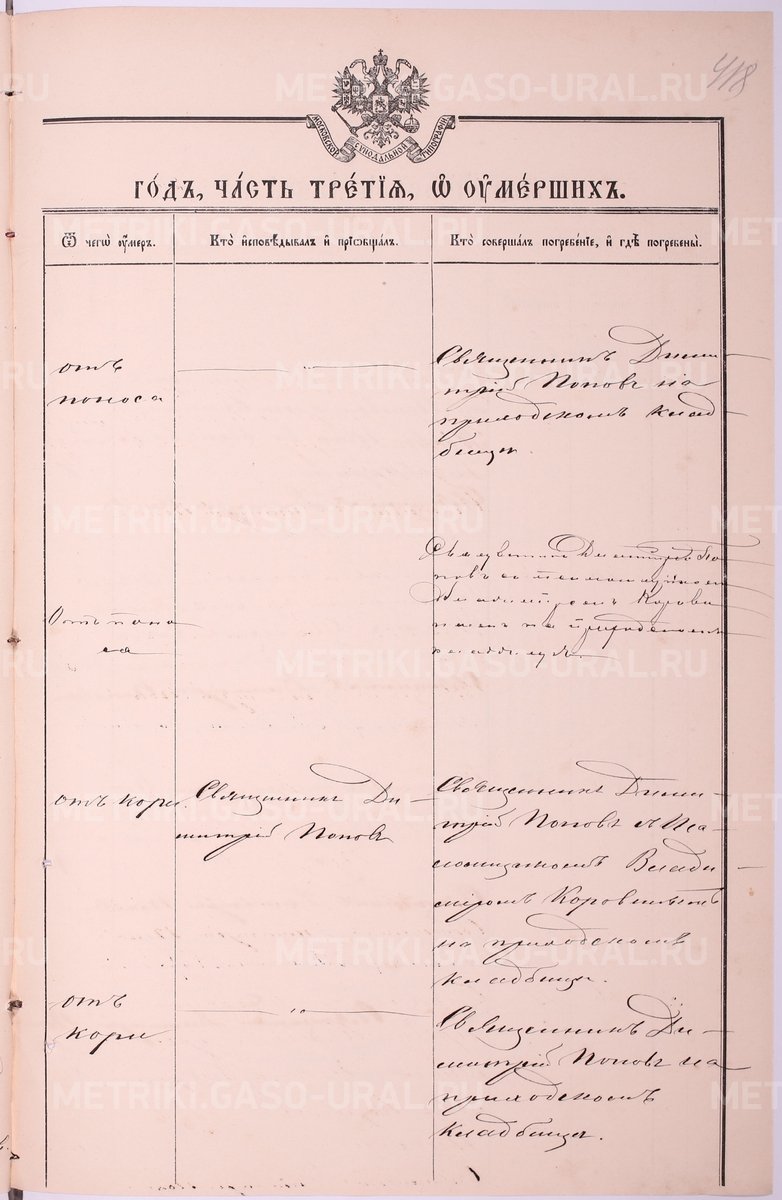 418
МОСКОВСКОЙ СѴНОДАЛЬНОЙ ТИПОГРАФІИ
ГО́ДЪ, ЧА́СТЬ ТРЕ́ТЇѦ, Ѡ҆ ОУ҆МЕ́РШИХЪ.
Ѿ чегѡ̀ оу҆́меръ.
Кто̀ и҆сповѣ́дывалъ и҆ прїѡбща́лъ.
Кто̀ соверша́лъ погребе́нїе, и҆ гдѣ̀ погребены̀.
отъ
поноса
"
Священникъ Дими-
трій Поповъ на
приходскомъ клад-
бищѣ.
Отъ поно
са
Священникъ Димитрій По
повъ съ псаломщикомъ
Владиміромъ Корови
нымъ на приходскомъ
кладбищѣ.
отъ кори.
Священникъ Ди-
митрій Поповъ
Священникъ Дими-
трій Поповъ съ Пса-
ломщикомъ Влади-
міромъ Коровинымъ
на приходскомъ
кладбищѣ.
отъ
кори
"
Священникъ Ди-
митрій Поповъ на
приходскомъ
кладбищѣ.
METRIKI.GASO-URAL.RU